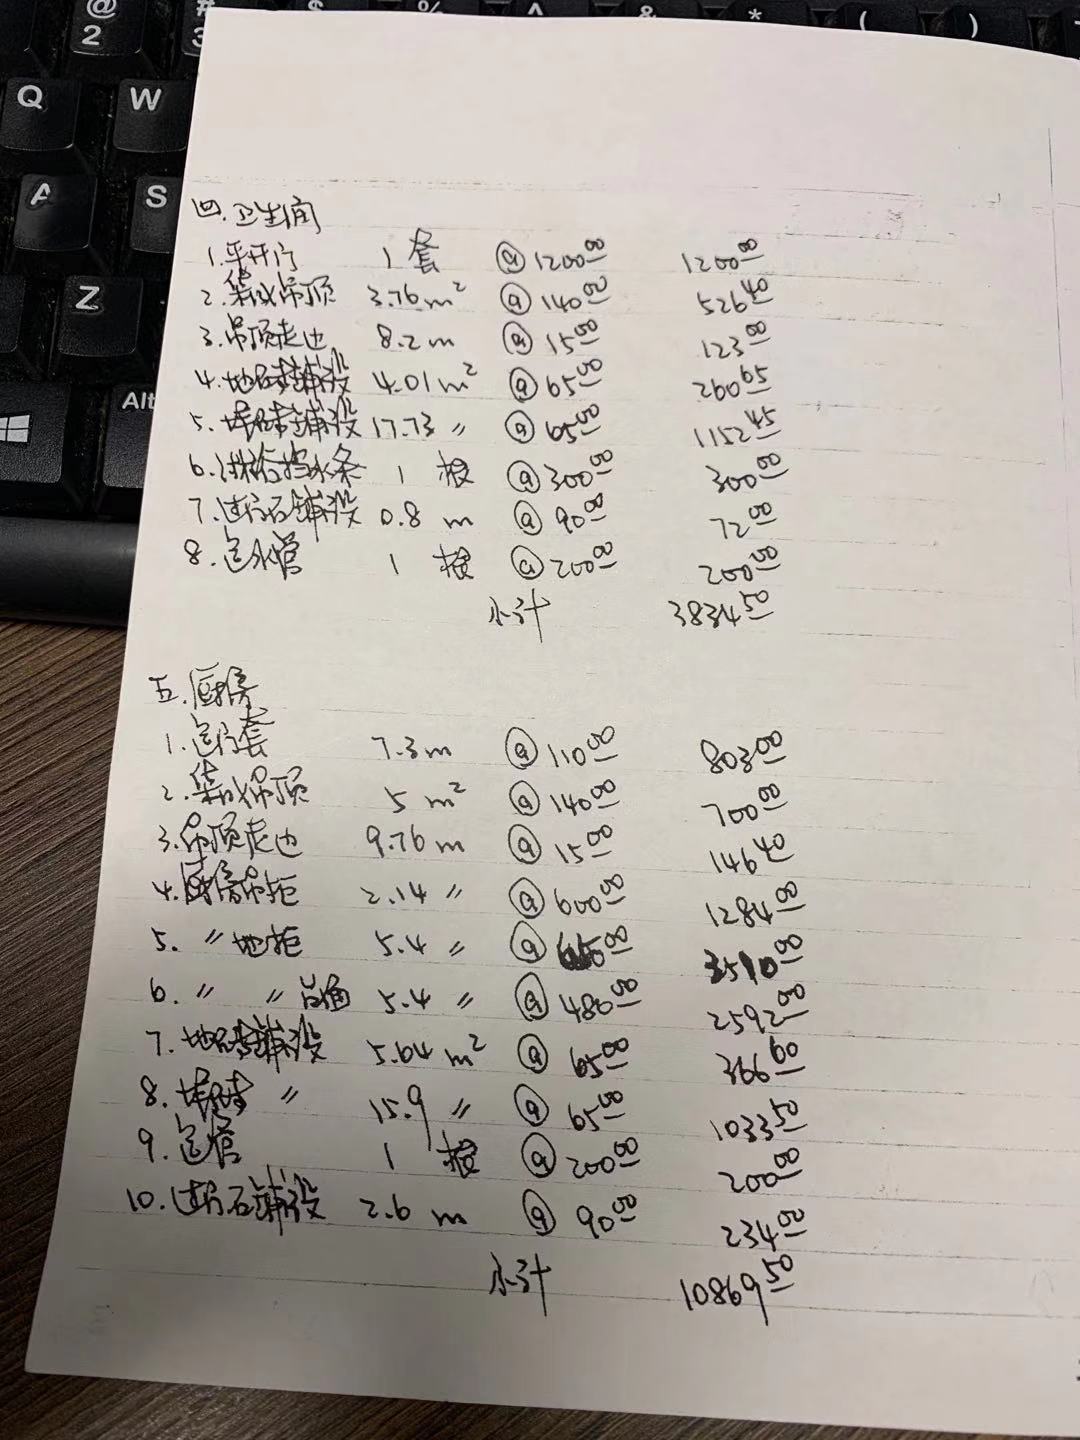 @ # $ % ^ & * ( )
2 3
Q W
A S
Z
Alt
四.卫生间
1.平开门 1 套 @1200.00 1200.00
2.集成吊顶 3.76m² @140.00 526.40
3.吊顶走边 8.2m @15.00 123.00
4.地砖铺设 4.01m² @65.00 260.65
5.墙砖铺设 17.73 〃 @65.00 1152.45
6.淋浴挡水条 1 根 @300.00 300.00
7.过门石铺设 0.8 m @90.00 72.00
8.包水管 1 根 @200.00 200.00
小计 3834.50
五.厨房
1.包门套 7.3m @110.00 803.00
2.集成吊顶 5 m² @140.00 700.00
3.吊顶走边 9.76m @15.00 146.40
4.厨房吊柜 2.14 〃 @600.00 1284.00
5. 〃 地柜 5.4 〃 @650.00 3510.00
6. 〃 〃 台面 5.4 〃 @480.00 2592.00
7.地砖铺设 5.64m² @65.00 366.60
8.墙砖 〃 15.9 〃 @65.00 1033.50
9.包管 1 根 @200.00 200.00
10.过门石铺设 2.6 m @90.00 234.00
小计 10869.50